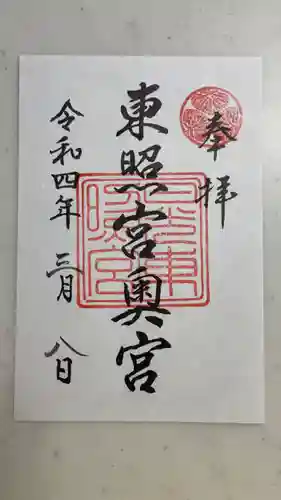 奉拝
東照宮奥宮
令和四年 三月 八日